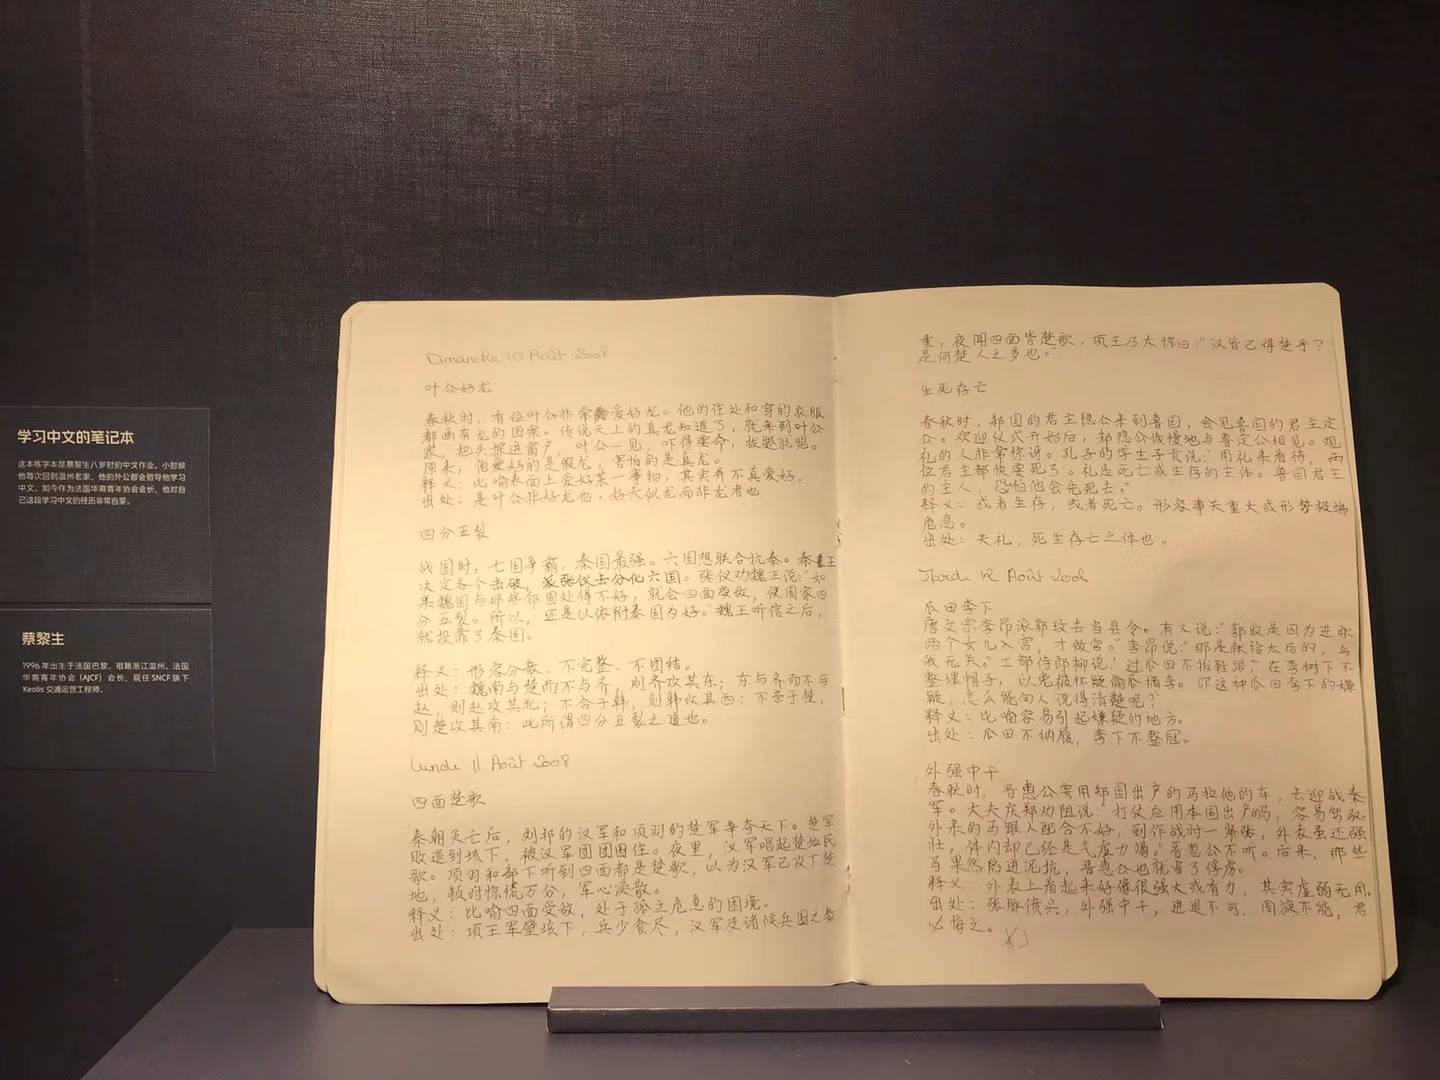 学习中文的笔记本
这本练字本是蔡黎生八岁时的中文作业。小时候
他每次回到温州老家，他的外公都会指导他学习
中文。如今作为法国华裔青年协会会长，他对自
己这段学习中文的经历非常自豪。
蔡黎生
1996 年出生于法国巴黎，祖籍浙江温州，法国
华裔青年协会（AJCF）会长，现任 SNCF 旗下
Keolis 交通运营工程师。
Dimanche 10 Août 2008
叶公好龙
春秋时，有位叶公非常爱好龙。他的住处和穿的衣服
都画有龙的图案。传说天上的真龙知道了，就来到叶公
家，把头探进窗户，叶公一见，吓得要命，拔腿就跑。
原来，他爱好的是假龙，害怕的是真龙。
释义：比喻表面上爱好某一事物，其实并不真爱好。
出处：是叶公非好龙也，好夫似龙而非龙者也
四分五裂
战国时，七国争霸，秦国最强。六国想联合抗秦。秦王
决定各个击破，派张仪去分化六国。张仪劝魏王说：“如
果魏国与那些邻国处得不好，就会四面受敌，使国家四
分五裂。所以，还是以依附秦国为好。”魏王听信之后，
就投靠了秦国。
释义：形容分散、不完整、不团结。
出处：魏南与楚而不与齐，则齐攻其东；东与齐而不与
赵，则赵攻其北；不合于韩，则韩攻其西；不亲于楚，
则楚攻其南：此所谓四分五裂之道也。
Lundi 11 Août 2008
四面楚歌
秦朝灭亡后，刘邦的汉军和项羽的楚军争夺天下。楚军
败退到垓下，被汉军团团围住。夜里，汉军唱起楚地民
歌。项羽和部下听到四面都是楚歌，以为汉军已攻下楚
地，顿时惊慌万分，军心涣散。
释义：比喻四面受敌，处于孤立危急的困境。
出处：项王军壁垓下，兵少食尽，汉军及诸候兵围之数
重，夜闻四面皆楚歌，项王乃大惊曰：“汉皆已得楚乎？
是何楚人之多也。”
生死存亡
春秋时，邾国的君主隐公来到鲁国，会见鲁国的君主定
公。欢迎仪式开始后，邾隐公傲慢地与鲁定公相见。观
礼的人非常惊讶。孔子的学生子贡说：“用礼来看待，两
位君主都快要死了。礼是死亡或生存的主体。鲁国君王
的主人，恐怕他会先死去。”
释义：或者生存，或者死亡。形容事关重大或形势极端
危急。
出处：夫礼，死生存亡之体也。
Mardi 12 Août 2008
瓜田李下
唐文宗李昂派郭旼去当县令。有人说：“郭旼是因为进献
两个女儿入宫，才做官。”李昂说：“那是献给太后的，与
我无关。”工部侍郎柳说：“过瓜田不拔鞋跟，在李树下不
整理帽子，以免被怀疑偷瓜摘李。你这种瓜田李下的嫌
疑，怎么能向人说得清楚呢？”
释义：比喻容易引起嫌疑的地方。
出处：瓜田不纳履，李下不整冠。
外强中干
春秋时，晋惠公要用郑国出产的马拉他的车，去迎战秦
军。大夫庆郑劝阻说：“打仗应用本国出产的马，容易驾驭。
外来的马跟人配合不好，到作战时一紧张，外表虽还强
壮，体内却已经是气虚力竭。”晋惠公不听。后来，那些
马果然陷进泥坑，晋惠公也就当了俘虏。
释义：外表上看起来好像很强大或有力，其实虚弱无用。
出处：张脉偾兴，外强中干，进退不可，周旋不能，君
必悔之。